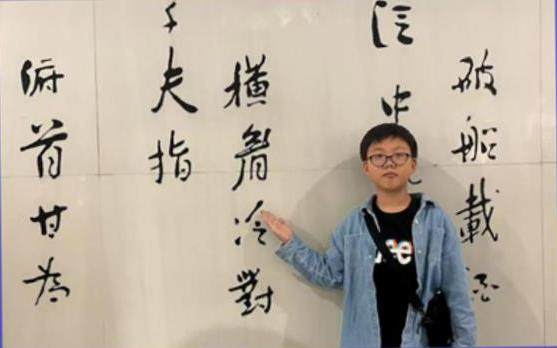 破船載酒
泛中
橫眉冷對
千夫指
俯首甘為